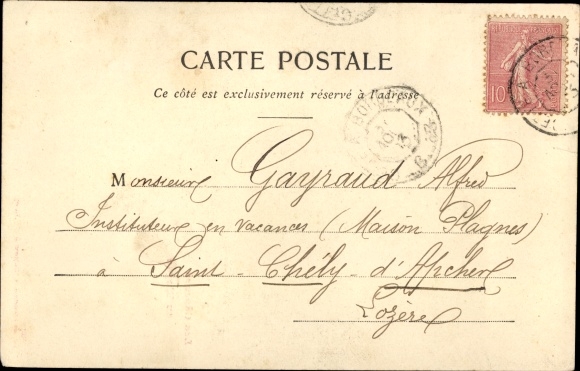 CARTE POSTALE
Ce côté est exclusivement réservé à l'adresse
10
BORDEAUX
Monsieur Gayraud Alfred
Instituteur en vacances (Maison Plagnes)
à Saint-Chély-d'Apcher
Lozère